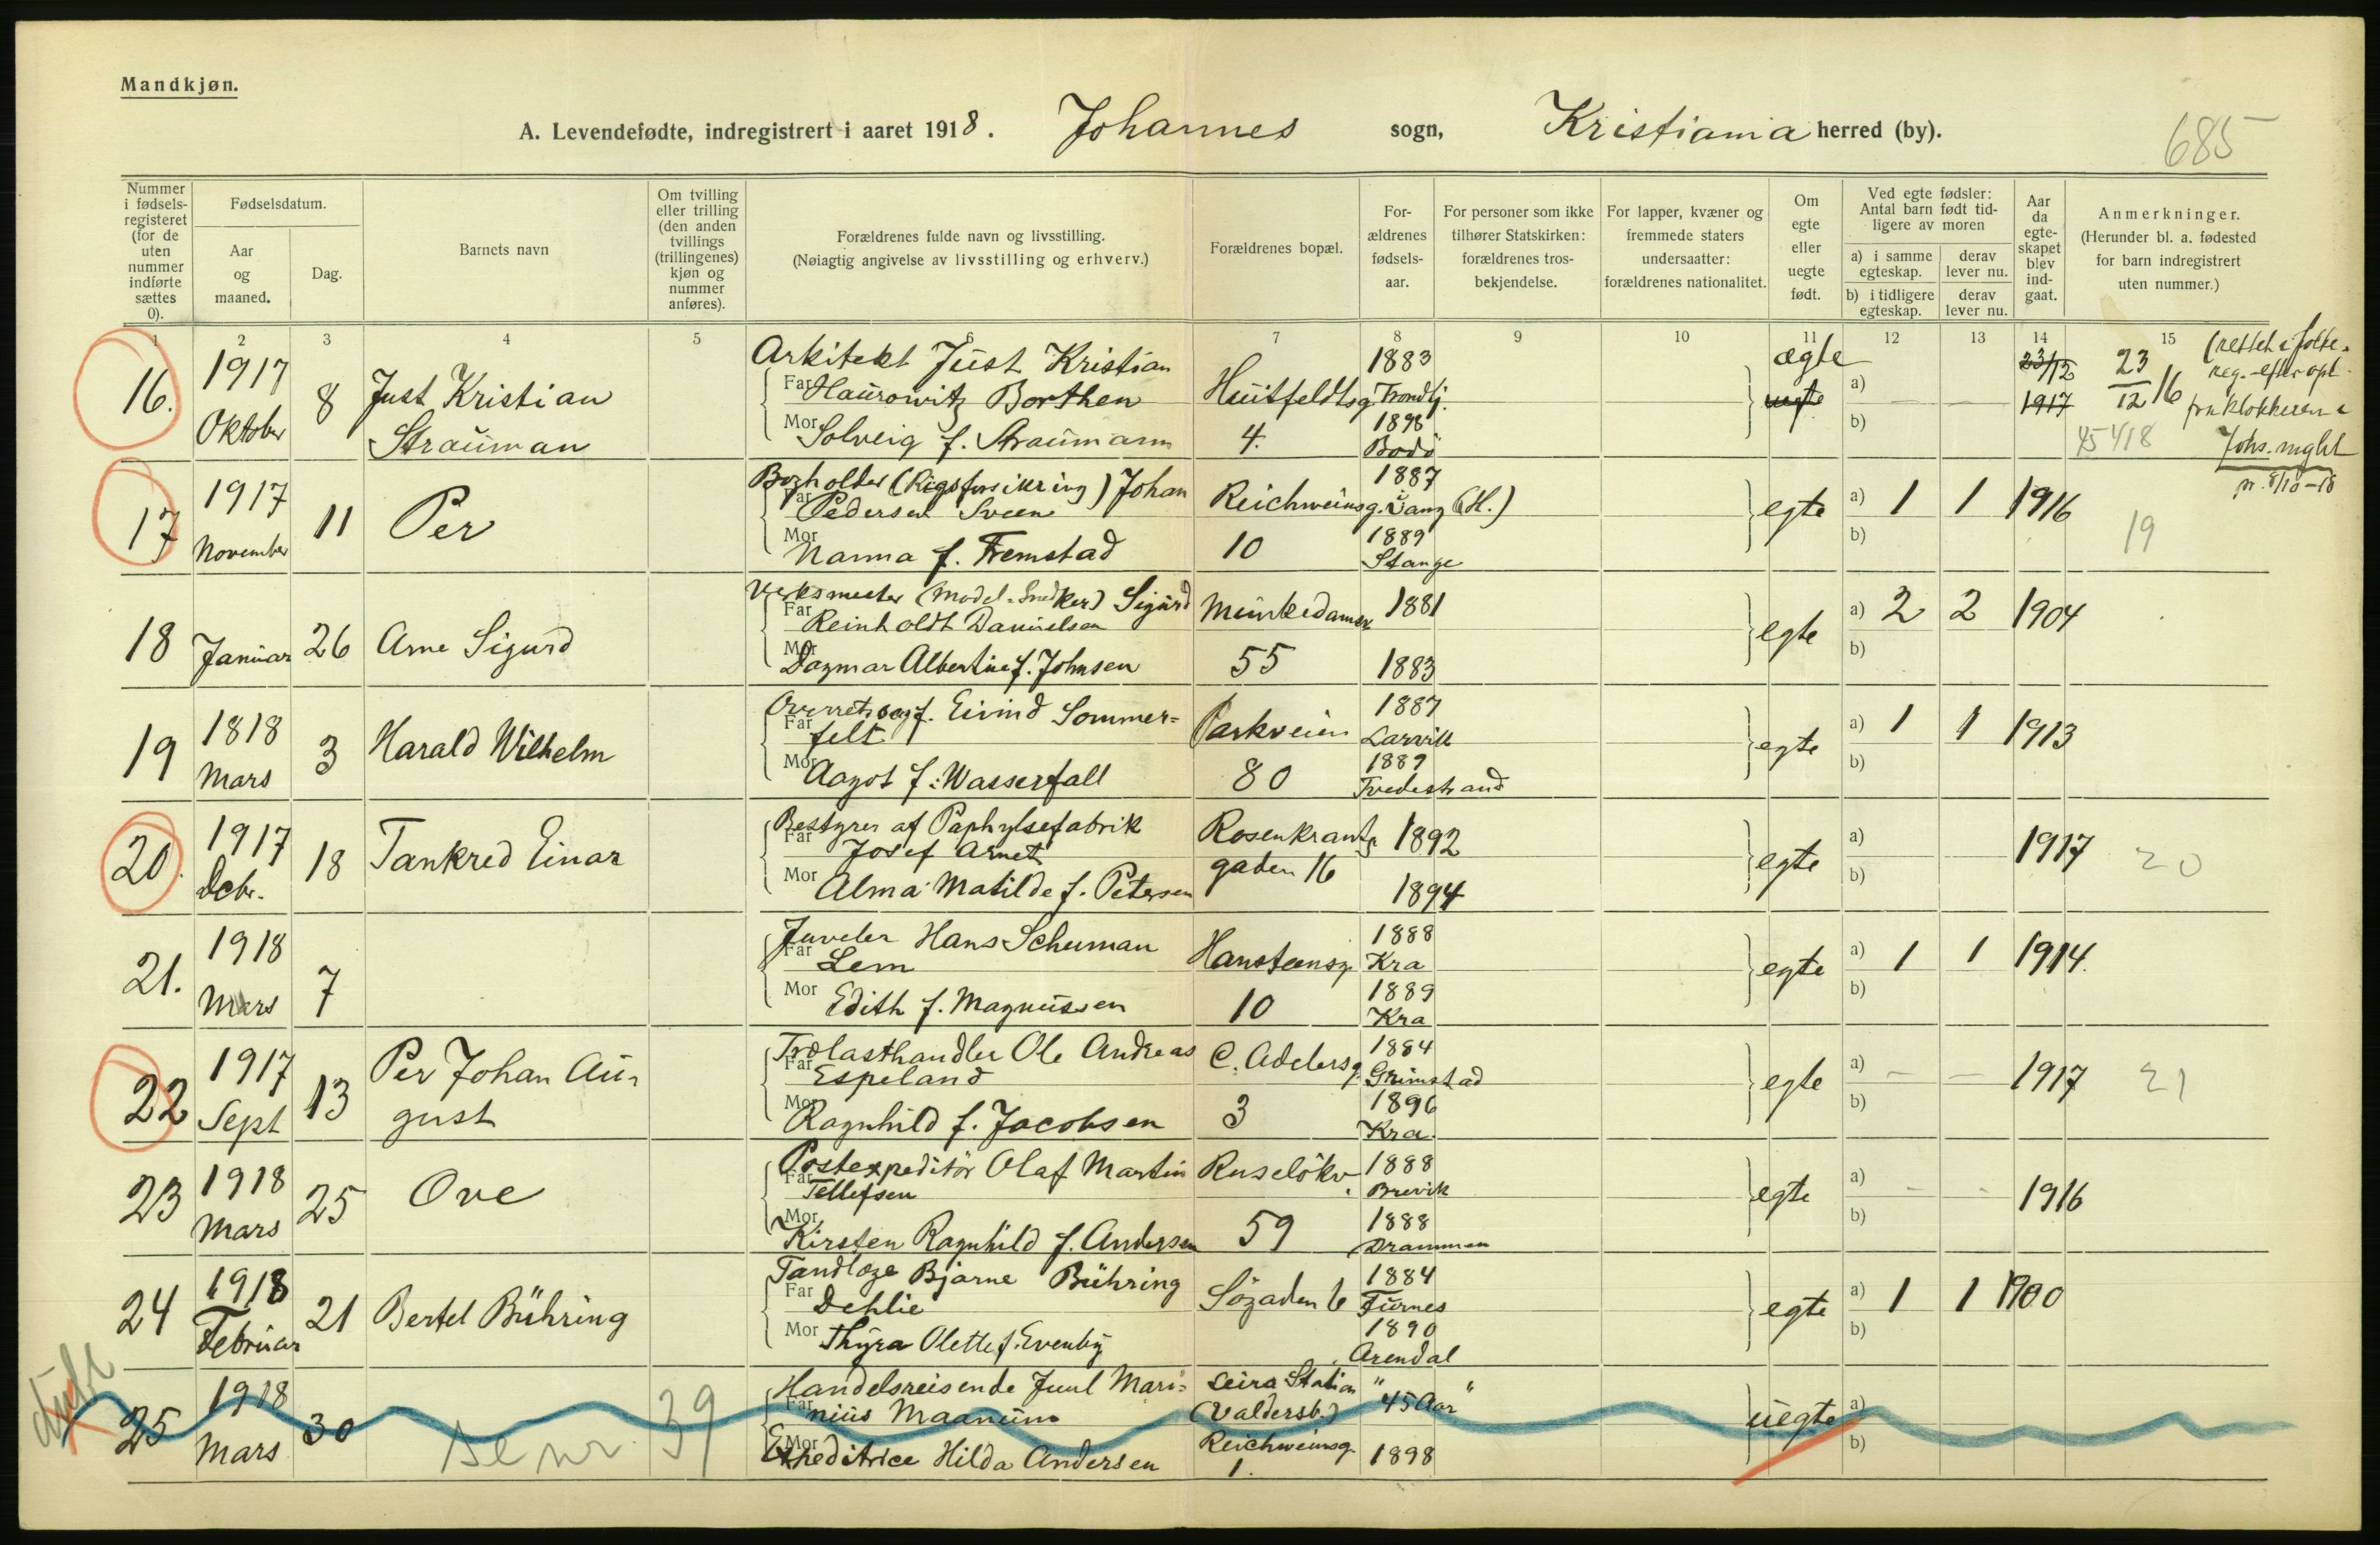 Mandkjøn.
A. Levendefødte, indregistrert i aaret 1918. Johannes sogn, Kristiania herred (by).
685
Nummer i fødsels-registeret (for de uten nummer indførte sættes 0).
Fødselsdatum.
Aar og maaned.
Dag.
Barnets navn
Om tvilling eller trilling (den anden tvillings (trillingenes) kjøn og nummer anføres).
Forældrenes fulde navn og livsstilling.
(Nøiagtig angivelse av livsstilling og erhverv.)
Forældrenes bopæl.
For-ældrenes fødsels-aar.
For personer som ikke tilhører Statskirken: forældrenes tros-bekjendelse.
For lapper, kvæner og fremmede staters undersaatter: forældrenes nationalitet.
Om egte eller uegte født.
Ved egte fødsler: Antal barn født tid-ligere av moren
a) i samme egteskap.
derav lever nu.
b) i tidligere egteskap.
derav lever nu.
Aar da egte-skapet blev ind-gaat.
Anmerkninger.
(Herunder bl. a. fødested for barn indregistrert uten nummer.)
1 2 3 4 5 6 7 8 9 10 11 12 13 14 15
16. 1917 Oktober 8 Just Kristian Strauman
Arkitekt Just Kristian
Far Haurowitz Borthen
Mor Solveig f. Straumann
Huitfeldtsg. 4.
1883 Trondhj.
1898 Bodö
egte uegte
a) — —
b)
23/12 1917
23/12 16
(rettet i folke-
reg. efter opl.
fra klokkeren i
Johs. mght
pr. 8/10-18
45418
17 1917 November 11 Per
Bogholder (Rigsforsikring) Johan
Far Pedersen Sveen
Mor Nanna f. Fremstad
Reichweinsg. 10
1887 Vang (H.)
1889 Stange
egte
a) 1 1 1916
b)
19
18 Januar 26 Arne Sigurd
Verksmester (Model-Snedker) Sigurd
Far Reinholdt Danielsen
Mor Dagmar Albertine f. Johnsen
Munkedamsv 55
1881
1883
egte
a) 2 2 1904
b)
19 1818 Mars 3 Harald Wilhelm
Overretssagf. Eivind Sommer=
Far felt
Mor Aagot f. Wasserfall
Parkveien 80
1887 Larvik
1889 Tvedestrand
egte
a) 1 1 1913
b)
20. 1917 Debr. 18 Tankred Einar
Bestyrer af Paphylsefabrik
Far Josef Arnet
Mor Alma Matilde f. Petersen
Rosenkrantz gaden 16
1892
1894
egte
a)
b)
1917
20
21. 1918 Mars 7
Juveler Hans Schuman
Far Lem
Mor Edith f. Magnussen
Hansteensg. 10
1888 Kra
1889 Kra
egte
a) 1 1 1914.
b)
22 1917 Sept 13 Per Johan Au-gust
Trælasthandler Ole Andreas
Far Espeland
Mor Ragnhild f. Jacobsen
C. Adelersg. 3
1884 Grimstad
1896 Kra.
egte
a) — — 1917
b)
21
23 1918 Mars 25 Ove
Postexpeditör Olaf Martin
Far Tellefsen
Mor Kirsten Ragnhild f. Andersen
Ruselökv. 59
1888 Brevik
1888 Drammen
egte
a) - - 1916
b)
24 1918 Februar 21 Bertel Bühring
Tandlæge Bjarne Bühring
Far Dehlie
Mor Thyra Olette f. Evenby
Sögaden 6
1884 Furnes
1890 Arendal
egte
a) 1 1 1900
b)
25 1918 Mars 30
Se nr. 39
Handelsreisende Juul Mari=
Far nius Maanum
Mor Expeditrice Hilda Andersen
Leira Station (Valdersb.)
Reichweinsg. 1.
"45 Aar"
1898
uegte
a)
b)